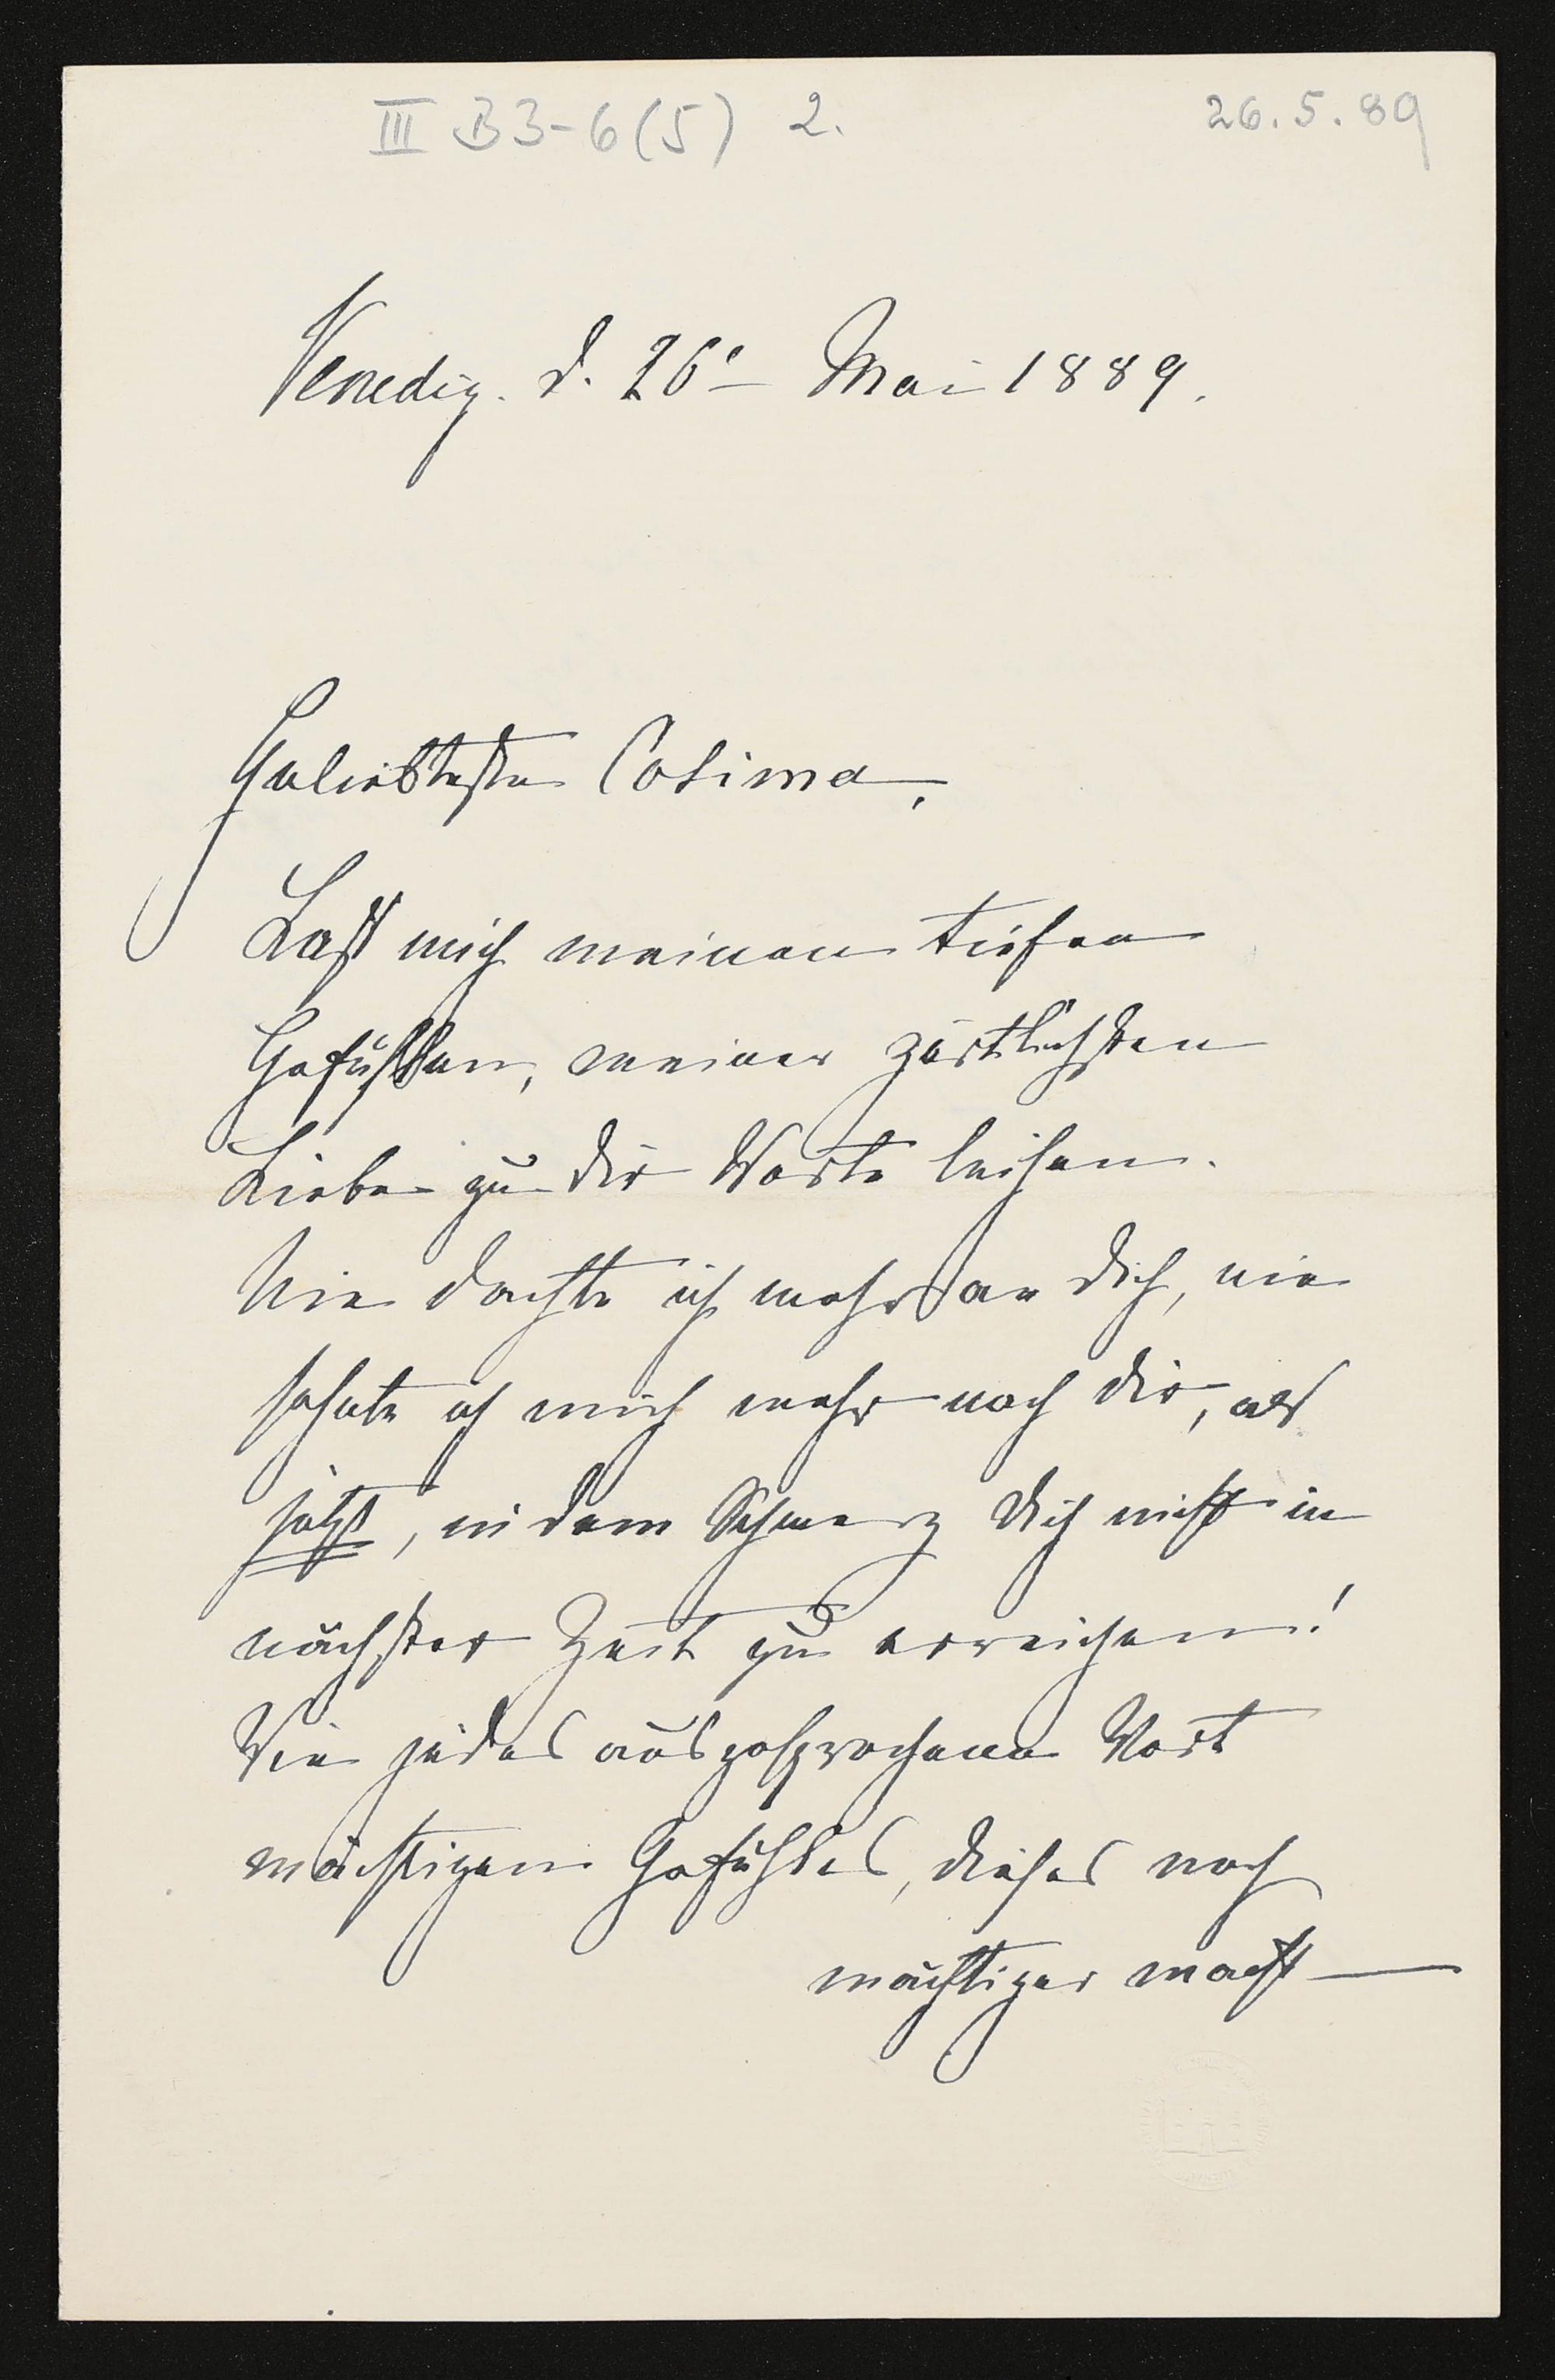 III B3-6(5) 2. 26.5.89
Venedig. d. 26t Mai 1889.
Geliebteste Cosima,
Lass mich meinen tiefen
Gefühlen, meiner zärtlichsten
Liebe zu Dir Worte leihen.
Nie dachte ich mehr an Dich, nie
sehnte ich mich mehr nach Dir, als
jetzt, in dem Schmerz Dich nicht in
nächster Zeit zu erreichen!
Wie jedes ausgesprochene Wort
mächtigen Gefühles, dieses noch
mächtiger macht —